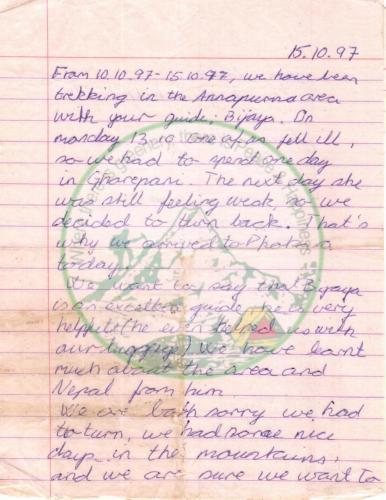 15.10.97
From 10.10.97-15.10.97, we have been
trekking in the Annapurna area
with your guide: Bijaya. On
monday 13.10 one of us fell ill,
so we had to spend one day
in Ghorepani. The next day she
was still feeling weak, so we
decided to turn back. That's
why we arrived to Pokhara
today.
We want to say that Bijaya
is an excellent guide, he is very
helpful (he even helped us with
our luggage) We have learnt
much about the area and
Nepal from him.
We are both sorry we had
to turn, we had some nice
days in the mountains,
and we are sure we want to